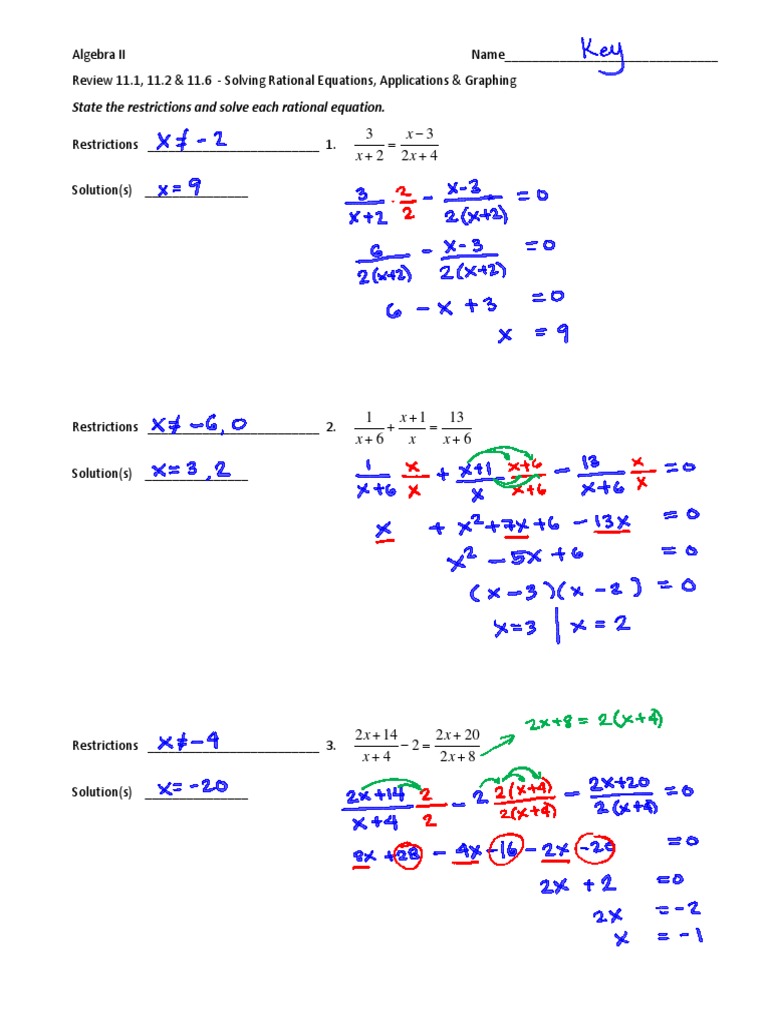 Algebra II Name Key
Review 11.1, 11.2 & 11.6 - Solving Rational Equations, Applications & Graphing
State the restrictions and solve each rational equation.
Restrictions x ≠ -2 1. 3/(x+2) = (x-3)/(2x+4)
Solution(s) x = 9
3/(x+2) · 2/2 - (x-3)/(2(x+2)) = 0
6/(2(x+2)) - (x-3)/(2(x+2)) = 0
6 - x + 3 = 0
x = 9
Restrictions x ≠ -6, 0 2. 1/(x+6) + (x+1)/x = 13/(x+6)
Solution(s) x = 3, 2
1/(x+6) x/x + (x+1)/x (x+6)/(x+6) - 13/(x+6) x/x = 0
x + x² + 7x + 6 - 13x = 0
x² - 5x + 6 = 0
(x-3)(x-2) = 0
x=3 | x = 2
2x+8 = 2(x+4)
Restrictions x ≠ -4 3. (2x+14)/(x+4) - 2 = (2x+20)/(2x+8)
Solution(s) x = -20
(2x+14)/(x+4) 2/2 - 2 2(x+4)/2(x+4) - (2x+20)/(2(x+4)) = 0
8x + 28 - 4x - 16 - 2x - 20 = 0
2x + 2 = 0
2x = -2
x = -1